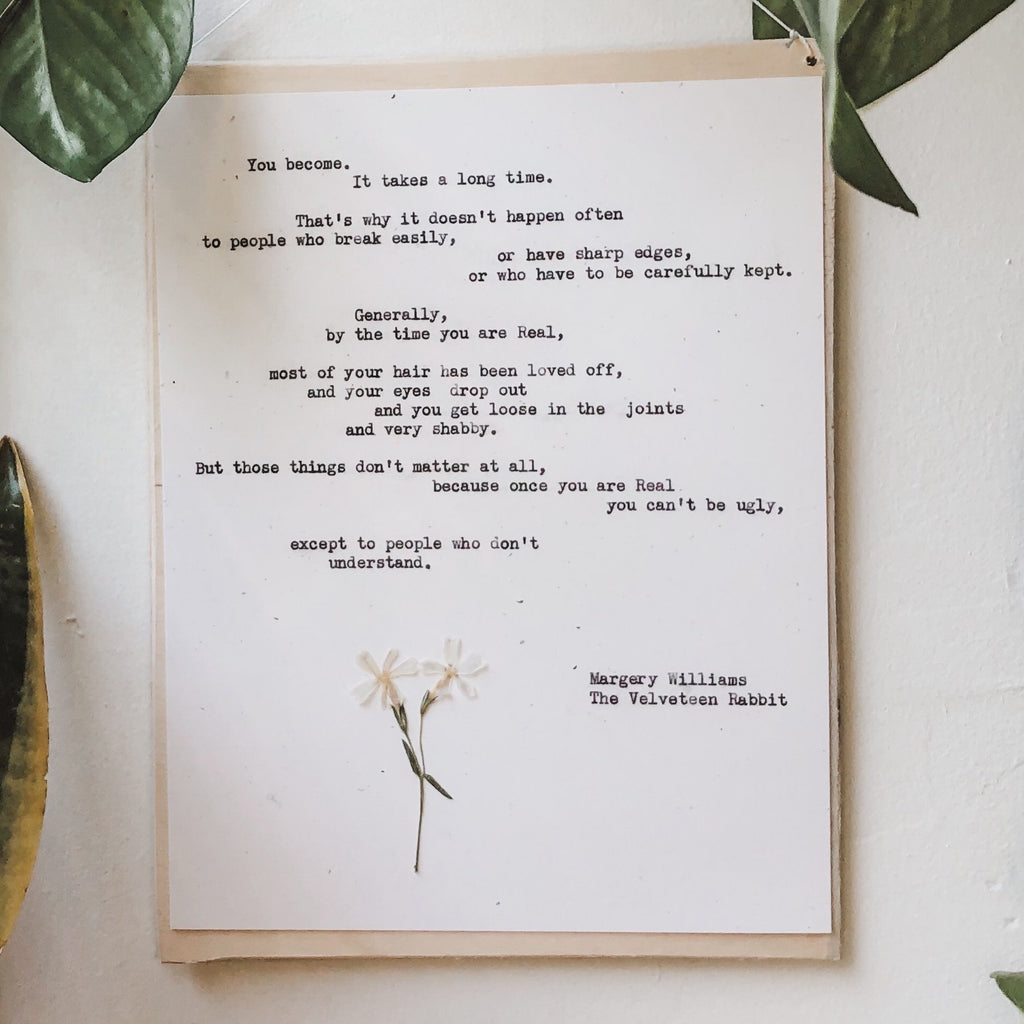 You become.
It takes a long time.
That's why it doesn't happen often
to people who break easily,
or have sharp edges,
or who have to be carefully kept.
Generally,
by the time you are Real,
most of your hair has been loved off,
and your eyes drop out
and you get loose in the joints
and very shabby.
But those things don't matter at all,
because once you are Real
you can't be ugly,
except to people who don't
understand.
Margery Williams
The Velveteen Rabbit